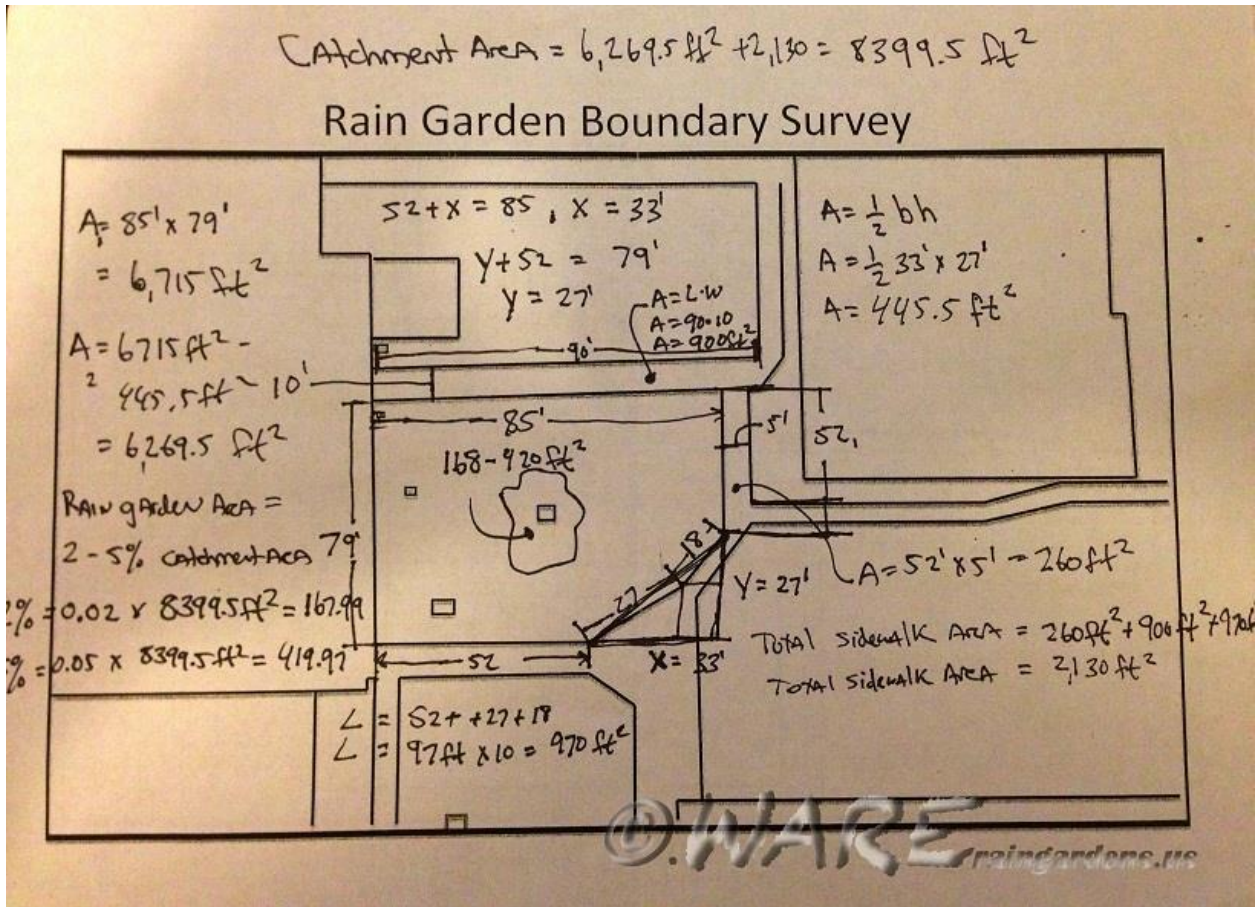 CAtchment AreA = 6,269.5 ft² + 2,130 = 8399.5 ft²
Rain Garden Boundary Survey
A₁ = 85' x 79'
= 6,715 ft²
A₂ = 6715 ft² -
445.5 ft
= 6,269.5 ft²
RAin gArden AreA =
2 - 5% catchment AreA
2% = 0.02 x 8399.5 ft² = 167.99
% = 0.05 x 8399.5 ft² = 419.97
52 + x = 85, x = 33'
Y + 52 = 79'
Y = 27'
A = L·W
A = 90·10
A = 900 ft²
90'
10'
85'
5'
52'
168-420 ft²
79'
18
27
52
X = 33'
Y = 27'
A = ½ bh
A = ½ 33' x 27'
A = 445.5 ft²
A = 52' x 5' = 260 ft²
TotAl SidewAlk AreA = 260 ft² + 900 ft² + 970 f
TotAl SidewAlk AreA = 2,130 ft²
L = 52 + +27+18
L = 97 ft x 10 = 970 ft²
©.WARE
raingardens.us